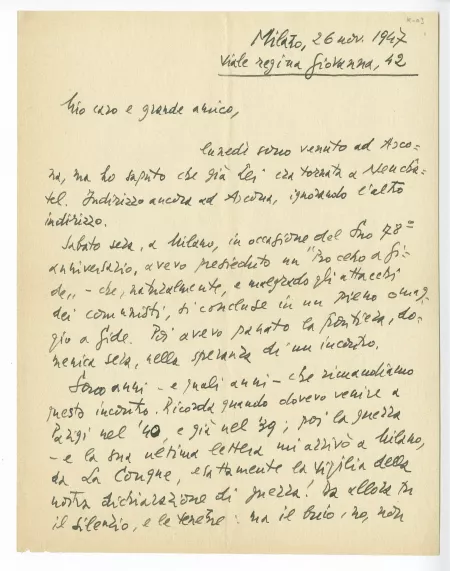 Milano, 26 nov. 1947
Viale regina Giovanna, 42
Mio caro e grande amico,
lunedì sono venuto ad Asco-
na, ma ho saputo che già Lei era tornata a Neuchâ-
tel. Indirizzo ancora ad Ascona, ignorando l'altro
indirizzo.
Sabato sera, a Milano, in occasione del Suo 78°
anniversario, avevo presieduto un "Processo a Gi-
de" - che, naturalmente, e malgrado gli attacchi
dei comunisti, si concluse in un pieno omag-
gio a Gide. Poi avevo passato la frontiera, do-
menica sera, nella speranza di un incontro.
Sono anni - e quali anni - che rimandiamo
questo incontro. Ricorda quando dovevo venire a
Parigi nel '40, e già nel '39; poi la guerra
- e la sua ultima lettera mi arrivò a Milano,
da La Conque, esattamente la vigilia della
nostra dichiarazione di guerra! Da allora fu
il silenzio, e le tenebre: ma il buio, no, non